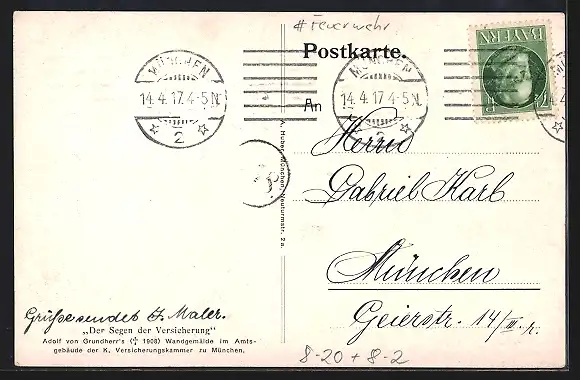 # Feuerwehr
Postkarte.
BAYERN
MÜNCHEN
14.4.17.4-5N.
2
MÜNCHEN
14.4.17.4-5N.
2
An
Herrn
Gabriel Karl
München
Geierstr. 14/III. r.
A. Huber, München, Neuturmstr. 2a.
Grüße sendet Maler.
„Der Segen der Versicherung"
Adolf von Grundherr's († 1908) Wandgemälde im Amts-
gebäude der K. Versicherungskammer zu München.
8-20 + 8-2